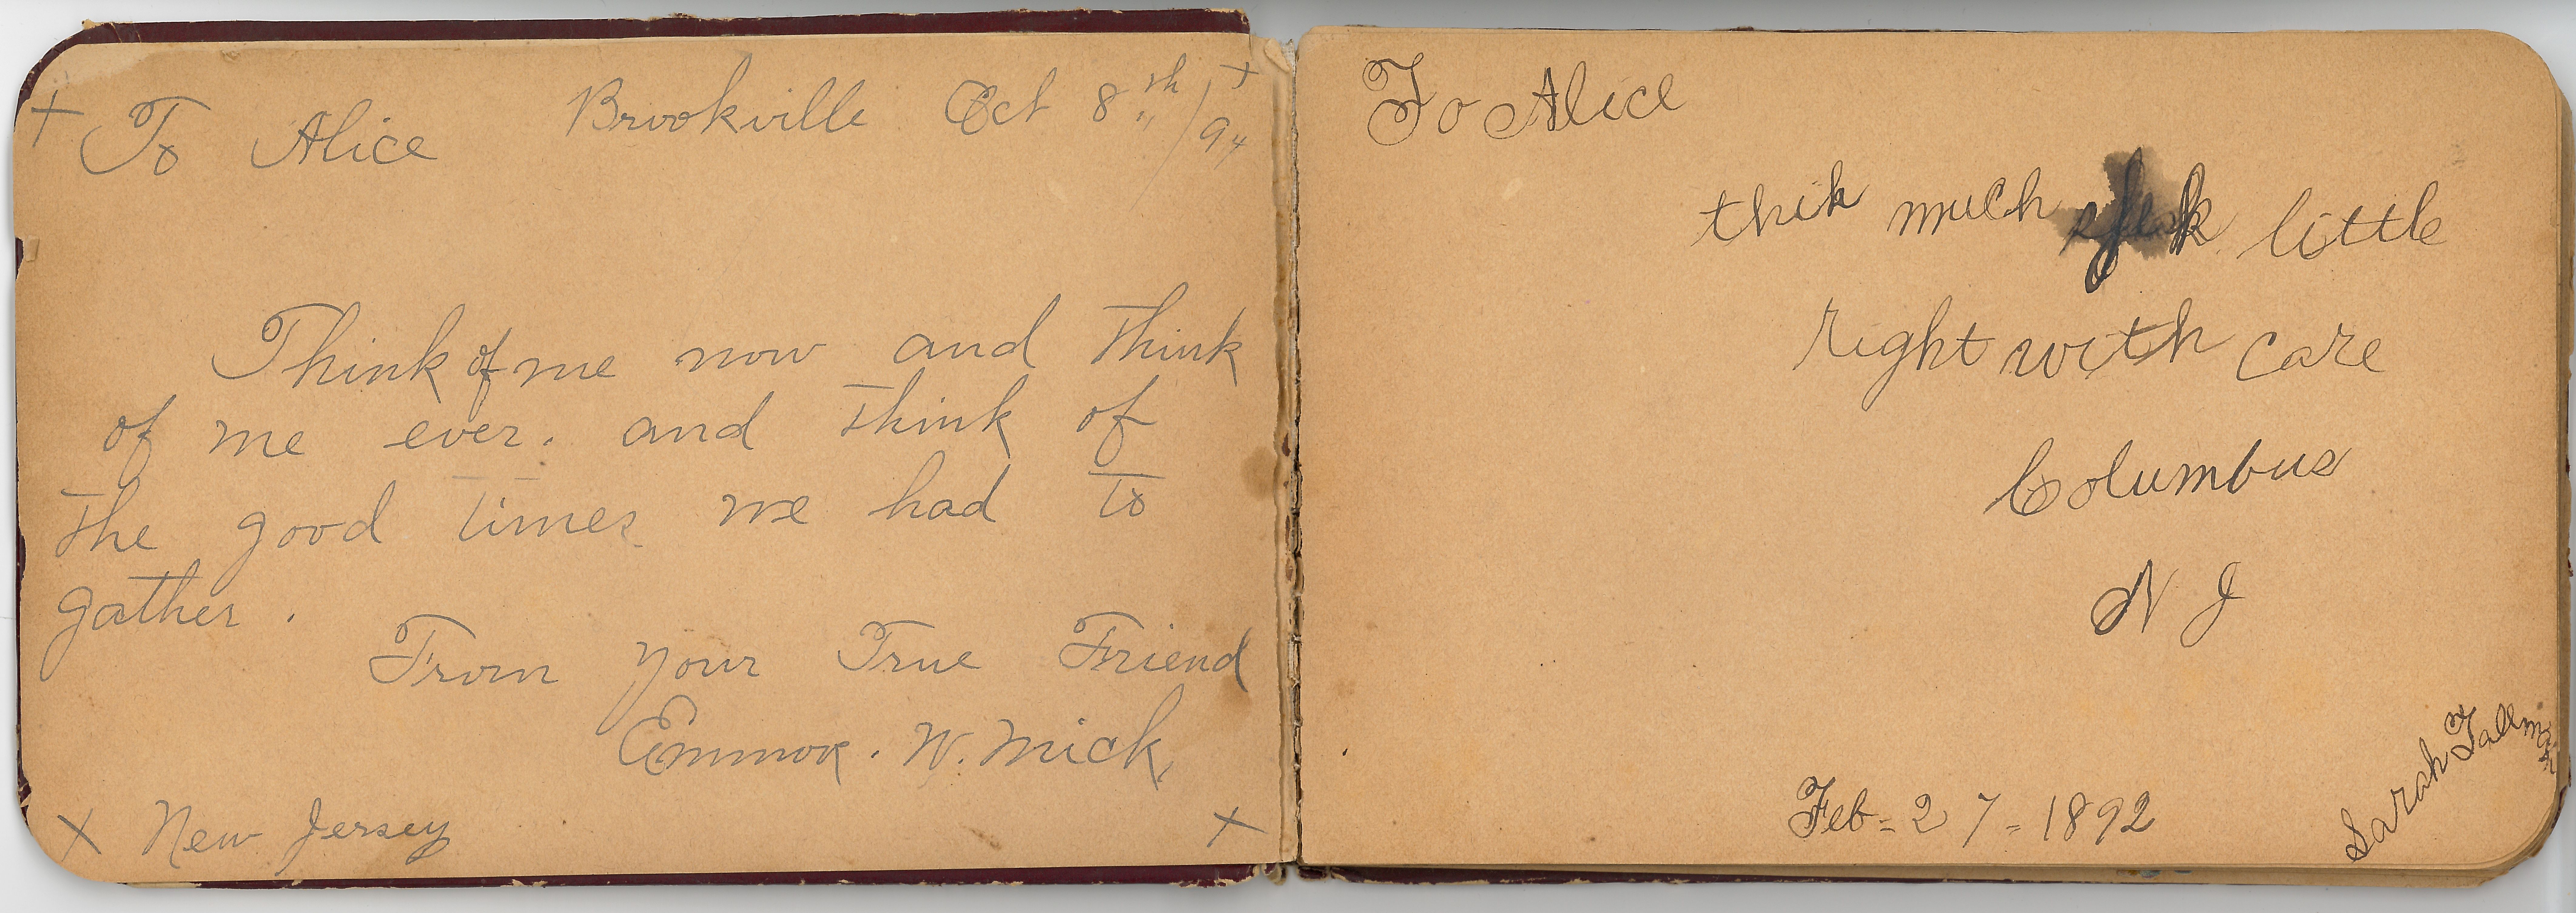 + To Alice Brookville Oct 8th / 94 +
Think of me now and think
of me ever. and think of
the good times we had to
gather.
From your True Friend
Emmor. W. Mick,
x New Jersey x
To Alice
thik much speak little
right with care
Columbus
N J
Feb = 27 = 1892
Sarah Tallman